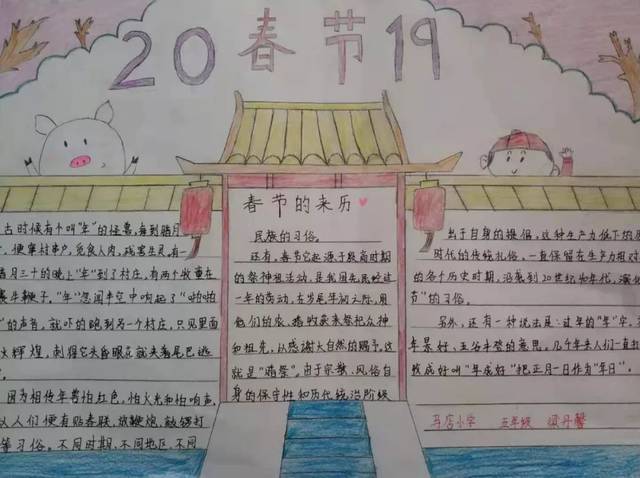 20春节19
春节的来历
古时候有个叫"年"的怪兽,每到腊月
,便窜村串户,觅食人肉,残害生灵,有一
腊月三十的晚上"年"到了村庄,有两个牧童在
赛牛鞭子,"年"忽闻半空中响起了"啪啪
"的声音,就吓的跑到另一个村庄,只见里面
火辉煌,刺得它头昏眼花就夹着尾巴逃
因为相传年兽怕红色,怕火光和怕响声,
以人们便有贴春联,放鞭炮,敲锣打
等习俗。不同时期、不同地区、不同
民族的习俗。
还有,春节它起源于殷商时期
的祭神祖活动,是我国先民经过
一年的劳动,在岁尾年初之际,用
他们的农、猎收获来祭祀众神
和祖先,以感谢大自然的赐予,这
就是"腊祭"。由于宗教、风俗自
身的保守性和历代统治阶级
出于自身的提倡,这种生产力低下的原
时代的烧烧礼俗,一直保留在生产相对
的各个历史时期,沿袭到20世纪初年代,演
节"的习俗。
另外,还有一种说法是:过年的"年"字,
年景好、五谷丰登的意思。几千年来人们一直
收成好叫"年成好"把正月一日作为"年日"。
马店小学 五年级 馨